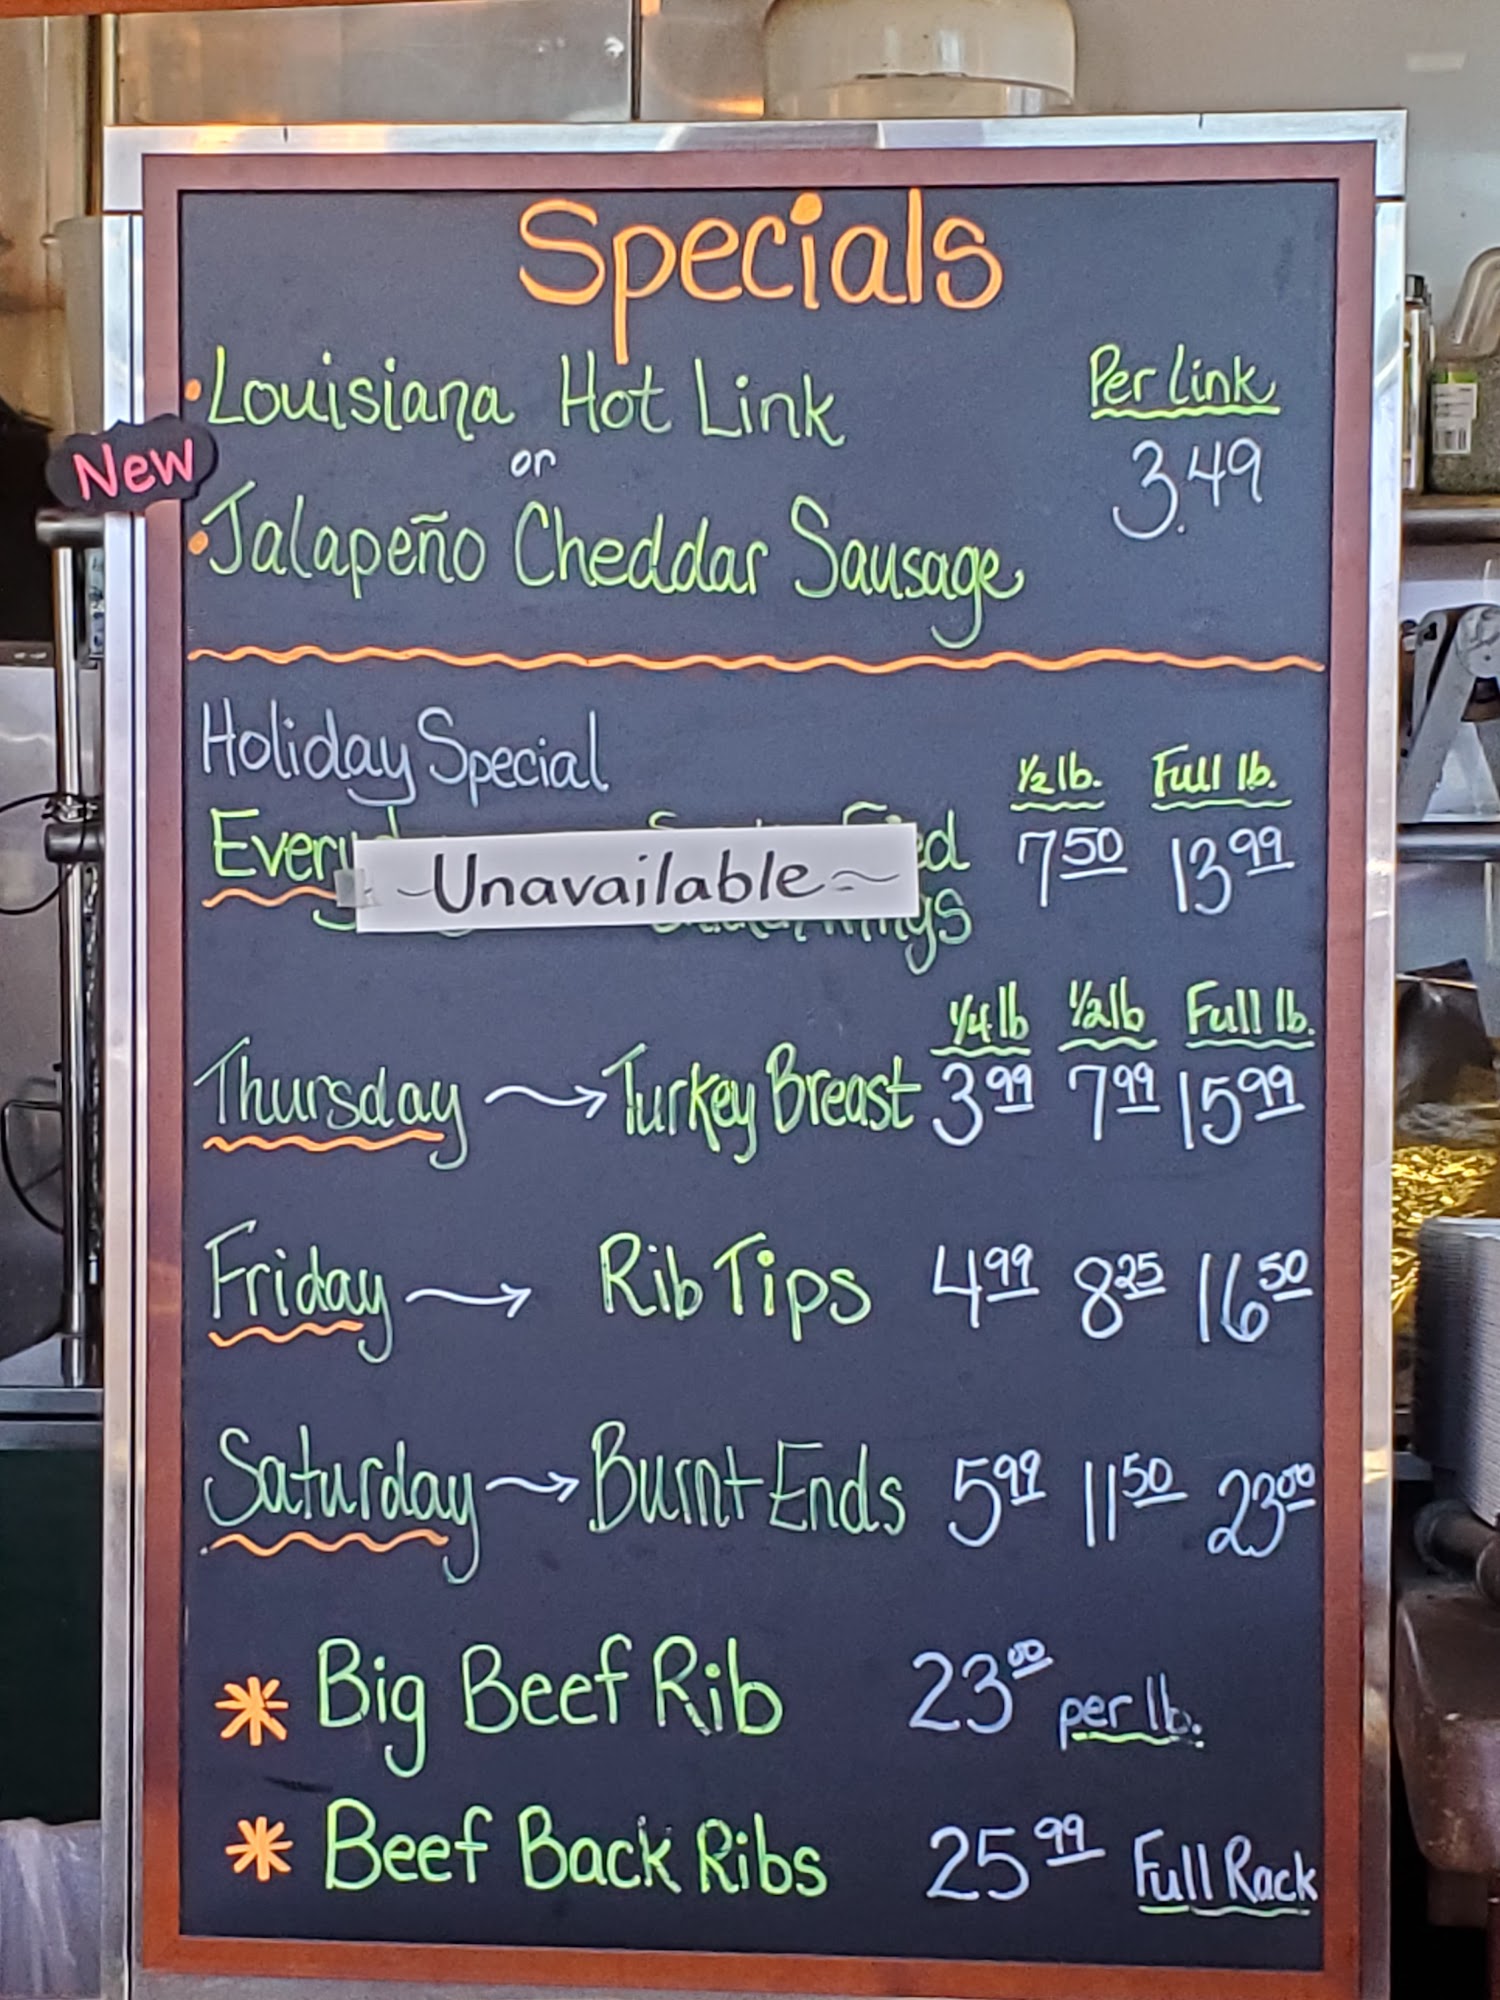 Specials
Louisiana Hot Link Per Link
New or 3.49
Jalapeño Cheddar Sausage
Holiday Special ½ lb. Full lb.
Unavailable 7.50 13.99
¼ lb ½ lb Full lb.
Thursday → Turkey Breast 3.99 7.99 15.99
Friday → Rib Tips 4.99 8.25 16.50
Saturday → Burnt Ends 5.99 11.50 23.00
* Big Beef Rib 23.00 per lb.
* Beef Back Ribs 25.99 Full Rack